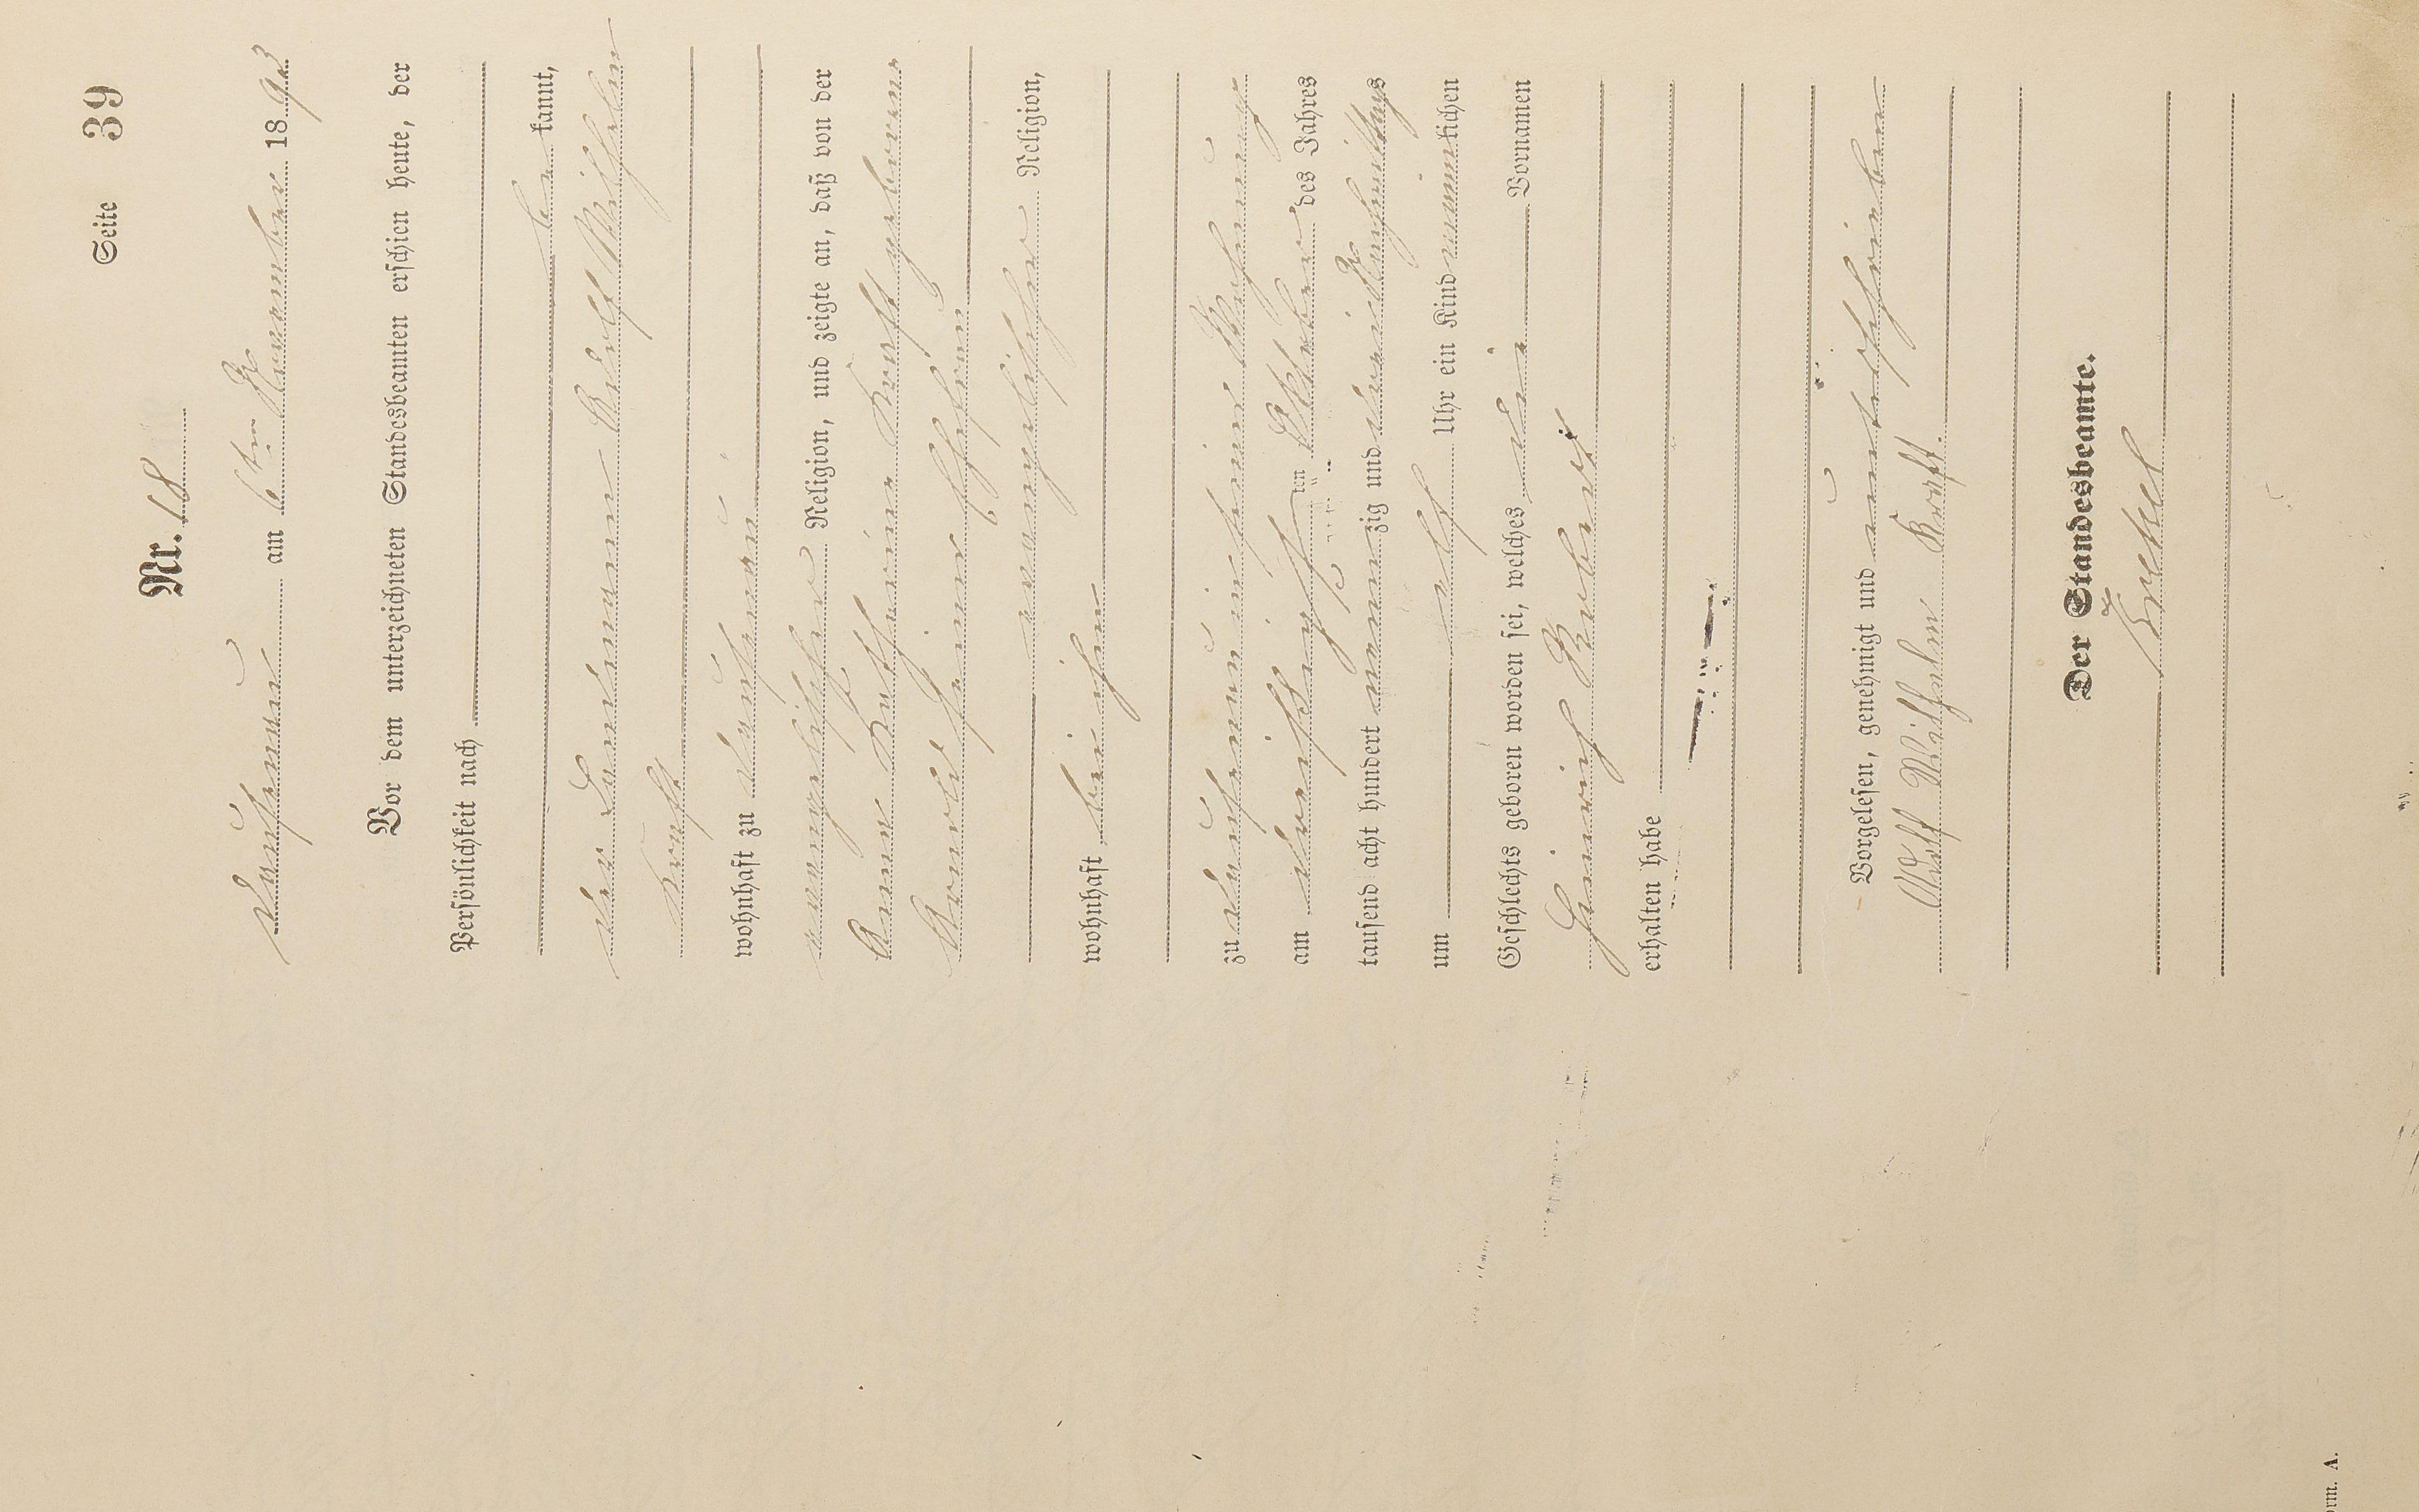 Seite 39
Nr. 18
Dausenau am 6ten November 1893
Vor dem unterzeichneten Standesbeamten erschien heute, der
Persönlichkeit nach
be kannt,
der Landmann Adolf Wilhelm
Kraft
wohnhaft zu Dausenau
evangelischer Religion, und zeigte an, daß von der
Anna Katharine Kraft geborene
Arnold seiner Ehefrau
evangelischer Religion,
wohnhaft bei ihm
zu Dausenau in seiner Wohnung
am dreißigsten Oktober des Jahres
tausend acht hundert neunzig und drei Nachmittags
um elf Uhr ein Kind männlichen
Geschlechts geboren worden sei, welches die Vornamen
Heinrich Robert
erhalten habe
Vorgelesen, genehmigt und unterschrieben
Adolf Wilhelm Kraft.
Der Standesbeamte.
orm. A.